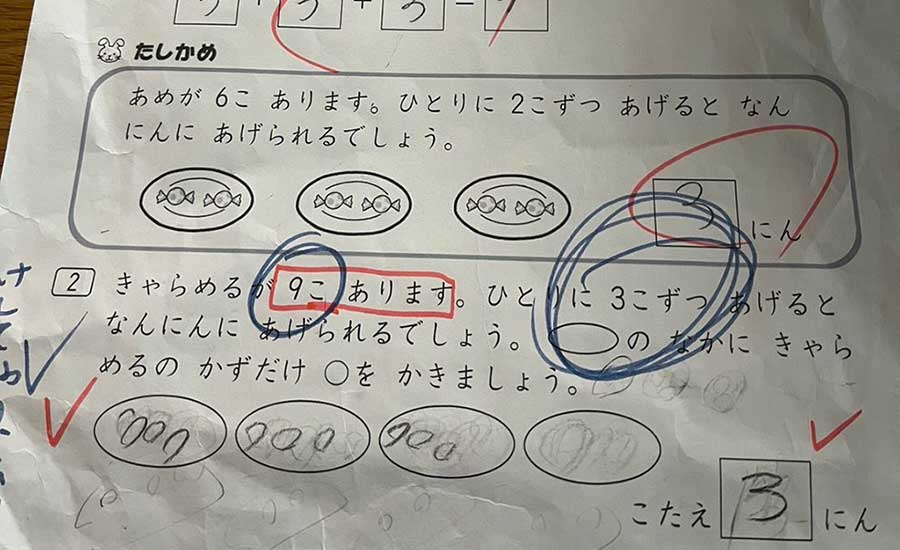 3 + 3 + 3 =
たしかめ
あめが 6こ あります。ひとりに 2こずつ あげると なん
にんに あげられるでしょう。
3 にん
2 きゃらめるが 9こ あります。ひとりに 3こずつ あげると
なんにんに あげられるでしょう。 の なかに きゃら
めるの かずだけ ○を かきましょう。
こたえ 3 にん